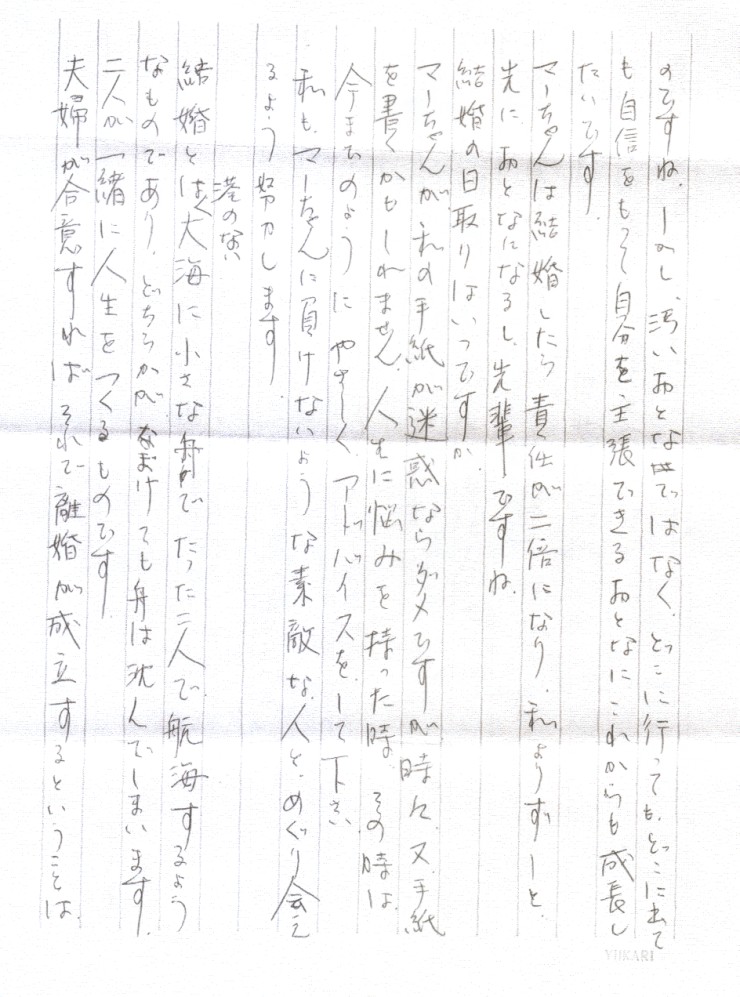 のですね。しかし、汚いおとなではなく、どこに行っても、どこに出て
も自信をもって自分を主張できるおとなにこれからも成長し
たいです。
マーちゃんは結婚したら責任が二倍になり、私よりずーと、
先に、おとなになるし、先輩ですね。
結婚の日取りはいつですか。
マーちゃんが、私の手紙が迷惑ならダメですが、時々、又、手紙
を書くかもしれません。人生に悩みを持った時、その時は、
今までのように、やさしく、アドバイスをして下さい
私も、マーちゃんに負けないような素敵な人と、めぐり会え
るよう努力します。
結婚とは、港のない大海に小さな舟でたった二人で航海するよう
なものであり、どちらかがなまけても舟は沈んでしまいます。
二人が一緒に人生をつくるものです。
夫婦が合意すれば、それで離婚が成立するということは、
YUKARI